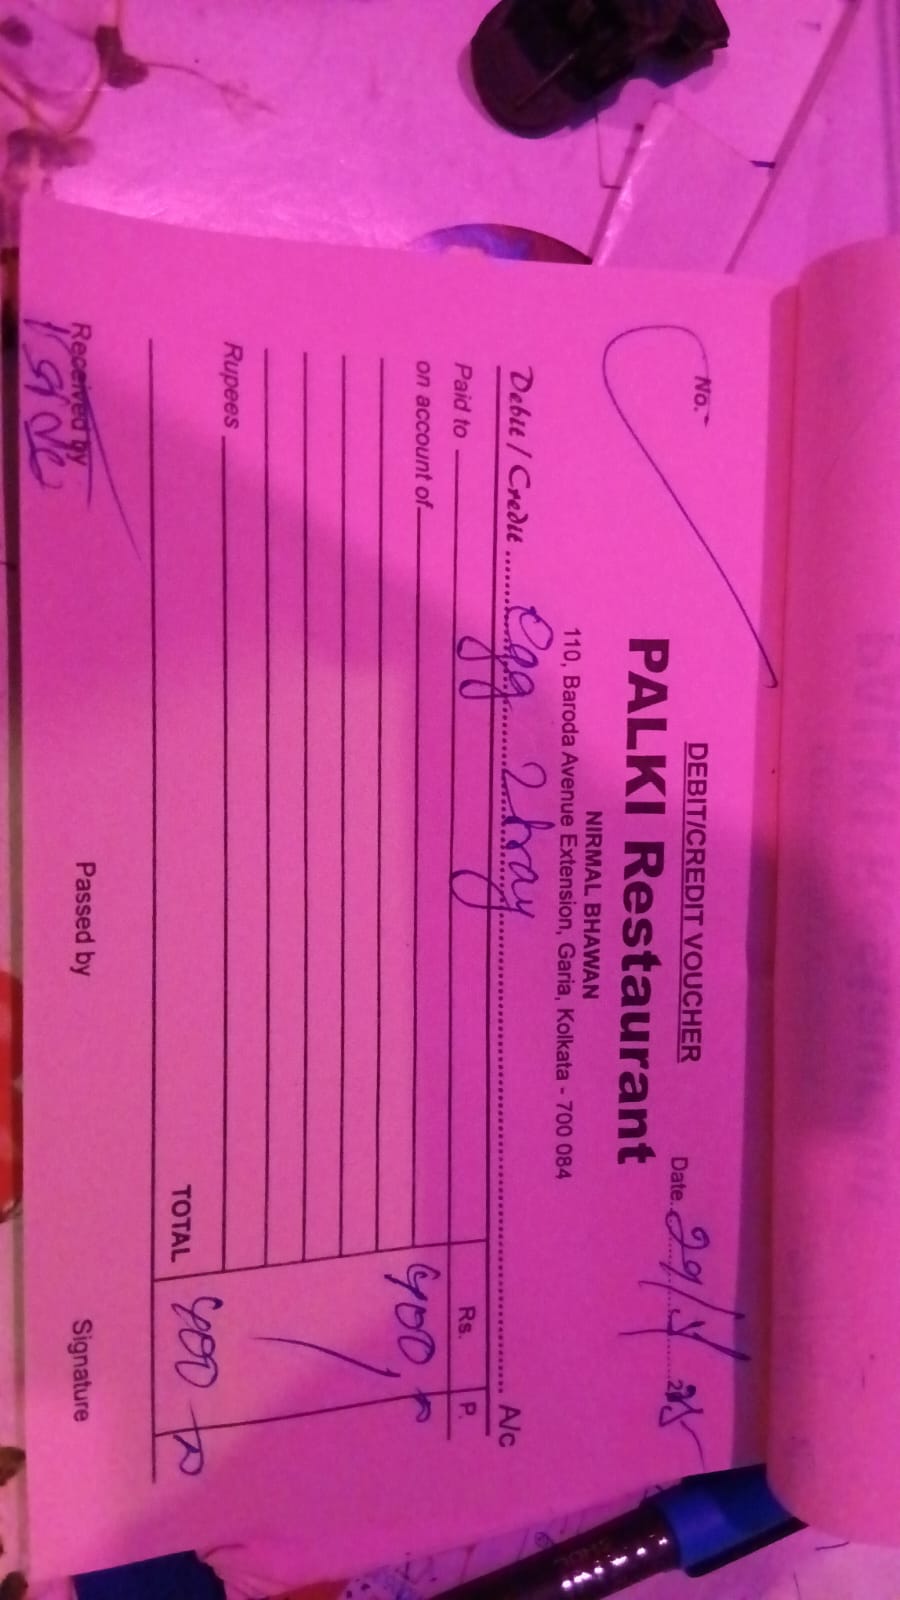 DEBIT/CREDIT VOUCHER
No.
Date. 29/5/25
PALKI Restaurant
NIRMAL BHAWAN
110, Baroda Avenue Extension, Garia, Kolkata - 700 084
Debit / Credit Egg 2 tray A/c
Paid to Rs. P.
on account of 400
Rupees
TOTAL 400
Received by Passed by Signature